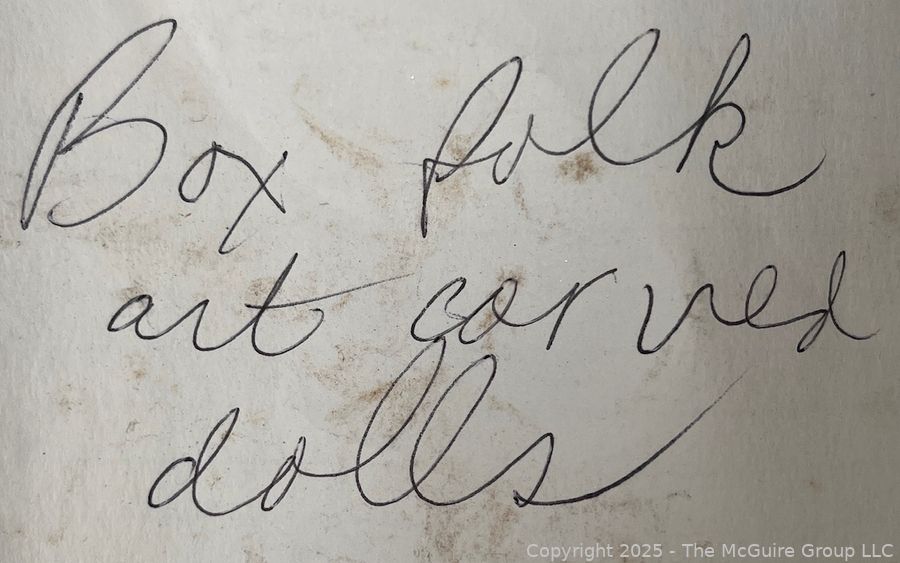 Box folk
art carved
dolls
Copyright 2025 - The McGuire Group LLC